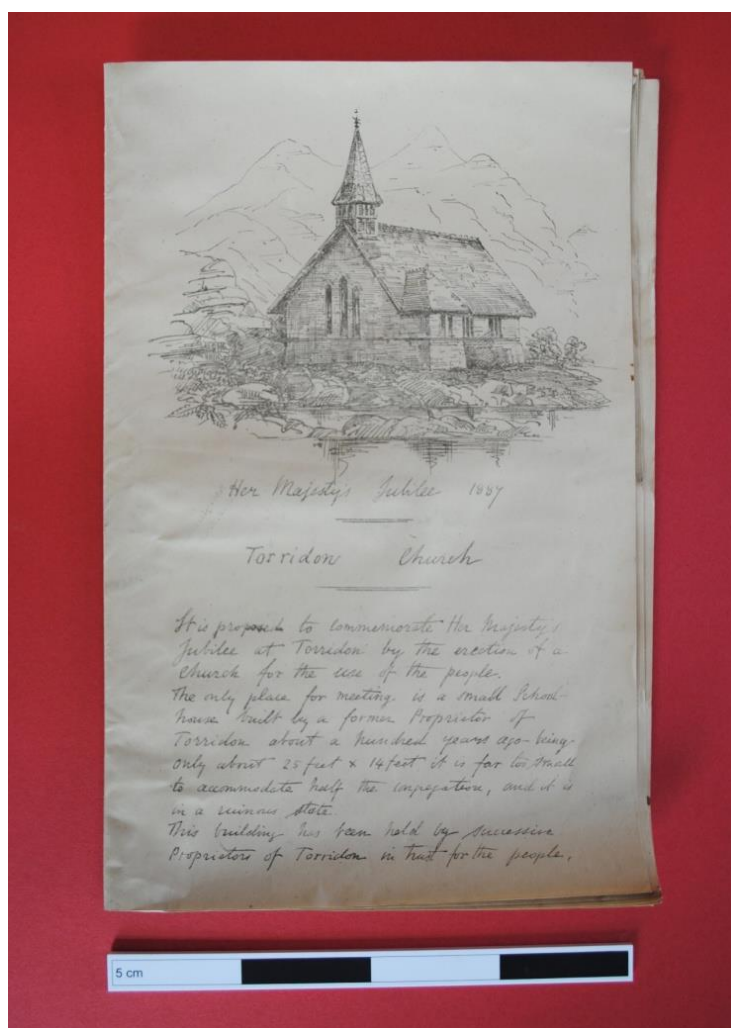 Her Majesty's Jubilee 1887
Torridon Church
It is proposed to commemorate Her Majesty's
Jubilee at Torridon by the erection of a
Church for the use of the people.
The only place for meeting is a small School-
house built by a former Proprietor of
Torridon about a hundred years ago - being
only about 25 feet x 14 feet it is far too small
to accommodate half the congregation, and it is
in a ruinous state.
This building has been held by successive
Proprietors of Torridon in trust for the people.
5 cm